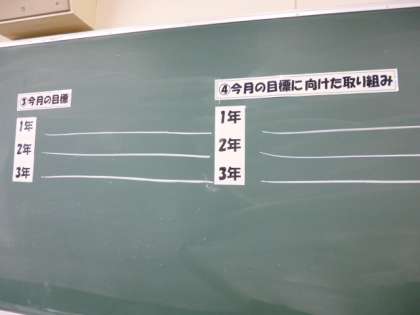 ③今月の目標
1年
2年
3年
④今月の目標に向けた取り組み
1年
2年
3年